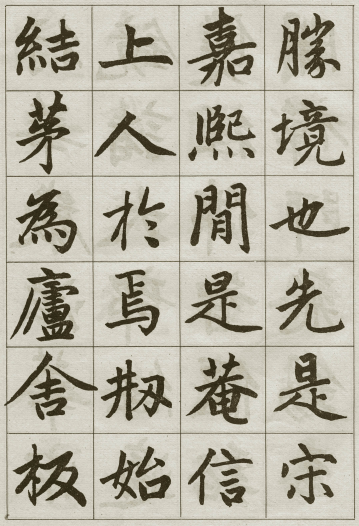 勝境也先是宋
嘉熙間是菴信
上人於焉刱始
結茅為廬舍板